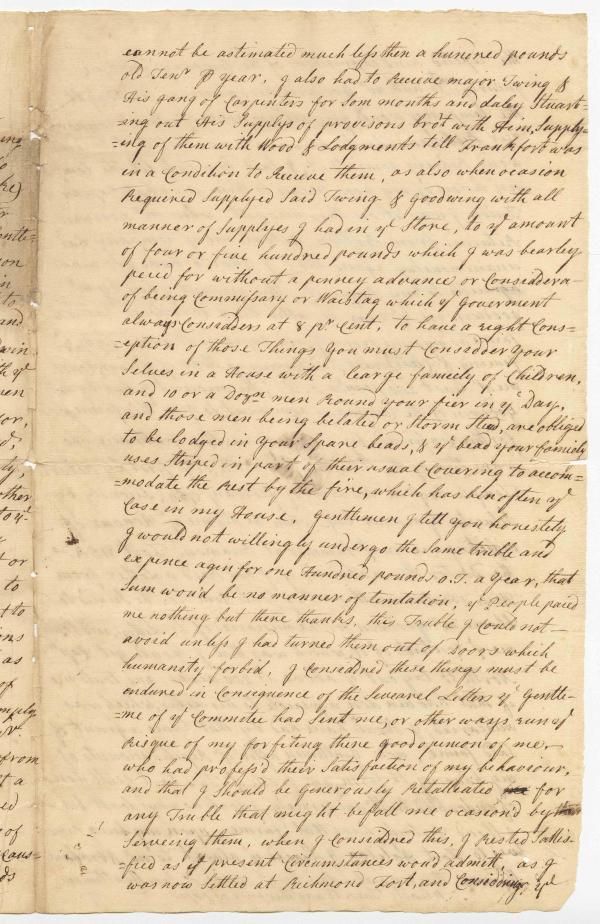 cannot be astimated much less then a hundred pounds
old Tenr. ⅌ year, I also had to Receive major Twing &
His gang of Carpenters for Som months and daley Stuart=
=ing out His Supplys of provisons brot with Him, Supply=
=ing of them with Wood & Lodgments till Frankfort was
in a Condition to Receive them, as also when ocasion
Required Supplyed Said Twing & Goodwing with all
manner of Supplyes I had in ye Store, to ye amount
of four or five hundred pounds which I was bearley
peid for without a penney advance or Considera=
of being Commissary or Waistag which ye Goverment
always Considders at 8 pr. Cent, to have a right Cons=
=eption of those Things You must Considder Your
Selves in a House with a large fameily of Children,
and 10 or a Dozn men Round your fier in ye Day,
and those men being belated or Storm Stead, are obliged
to be lodged in Your Spare beads, & ye bead your fameily
uses Striped in part of their usual Covering to accom=
=modate the Rest by the fire, which has ben often ye
Case in my House, Gentlemen I tell you honestely
I would not willingly undergo the Same truble and
expence agin for one Hundred pounds o.T. a Year, that
Sum woud be no manner of temtation, ye People paied
me nothing but there thanks, this Truble I Could not
avoid unless I had turned them out of Doors which
humanity forbid, I Considdred these things must be
endured in Consequence of the Seavarel Letters ye Gentle=
=me of ye Commitee had Sent me, or other ways run ye
Risque of my forfiting there good opinion of me,
who had profess'd their Satisfaction of my behaviour,
and that I should be Generously Retalliated for
any Truble that might befall me ocasion'd by
Serveing them, when I Considdred this, I Rested Sattis=
=fied as ye present Circumstances woud admitt, as I
was now Settled at Richmond Fort, and Considdring, ye